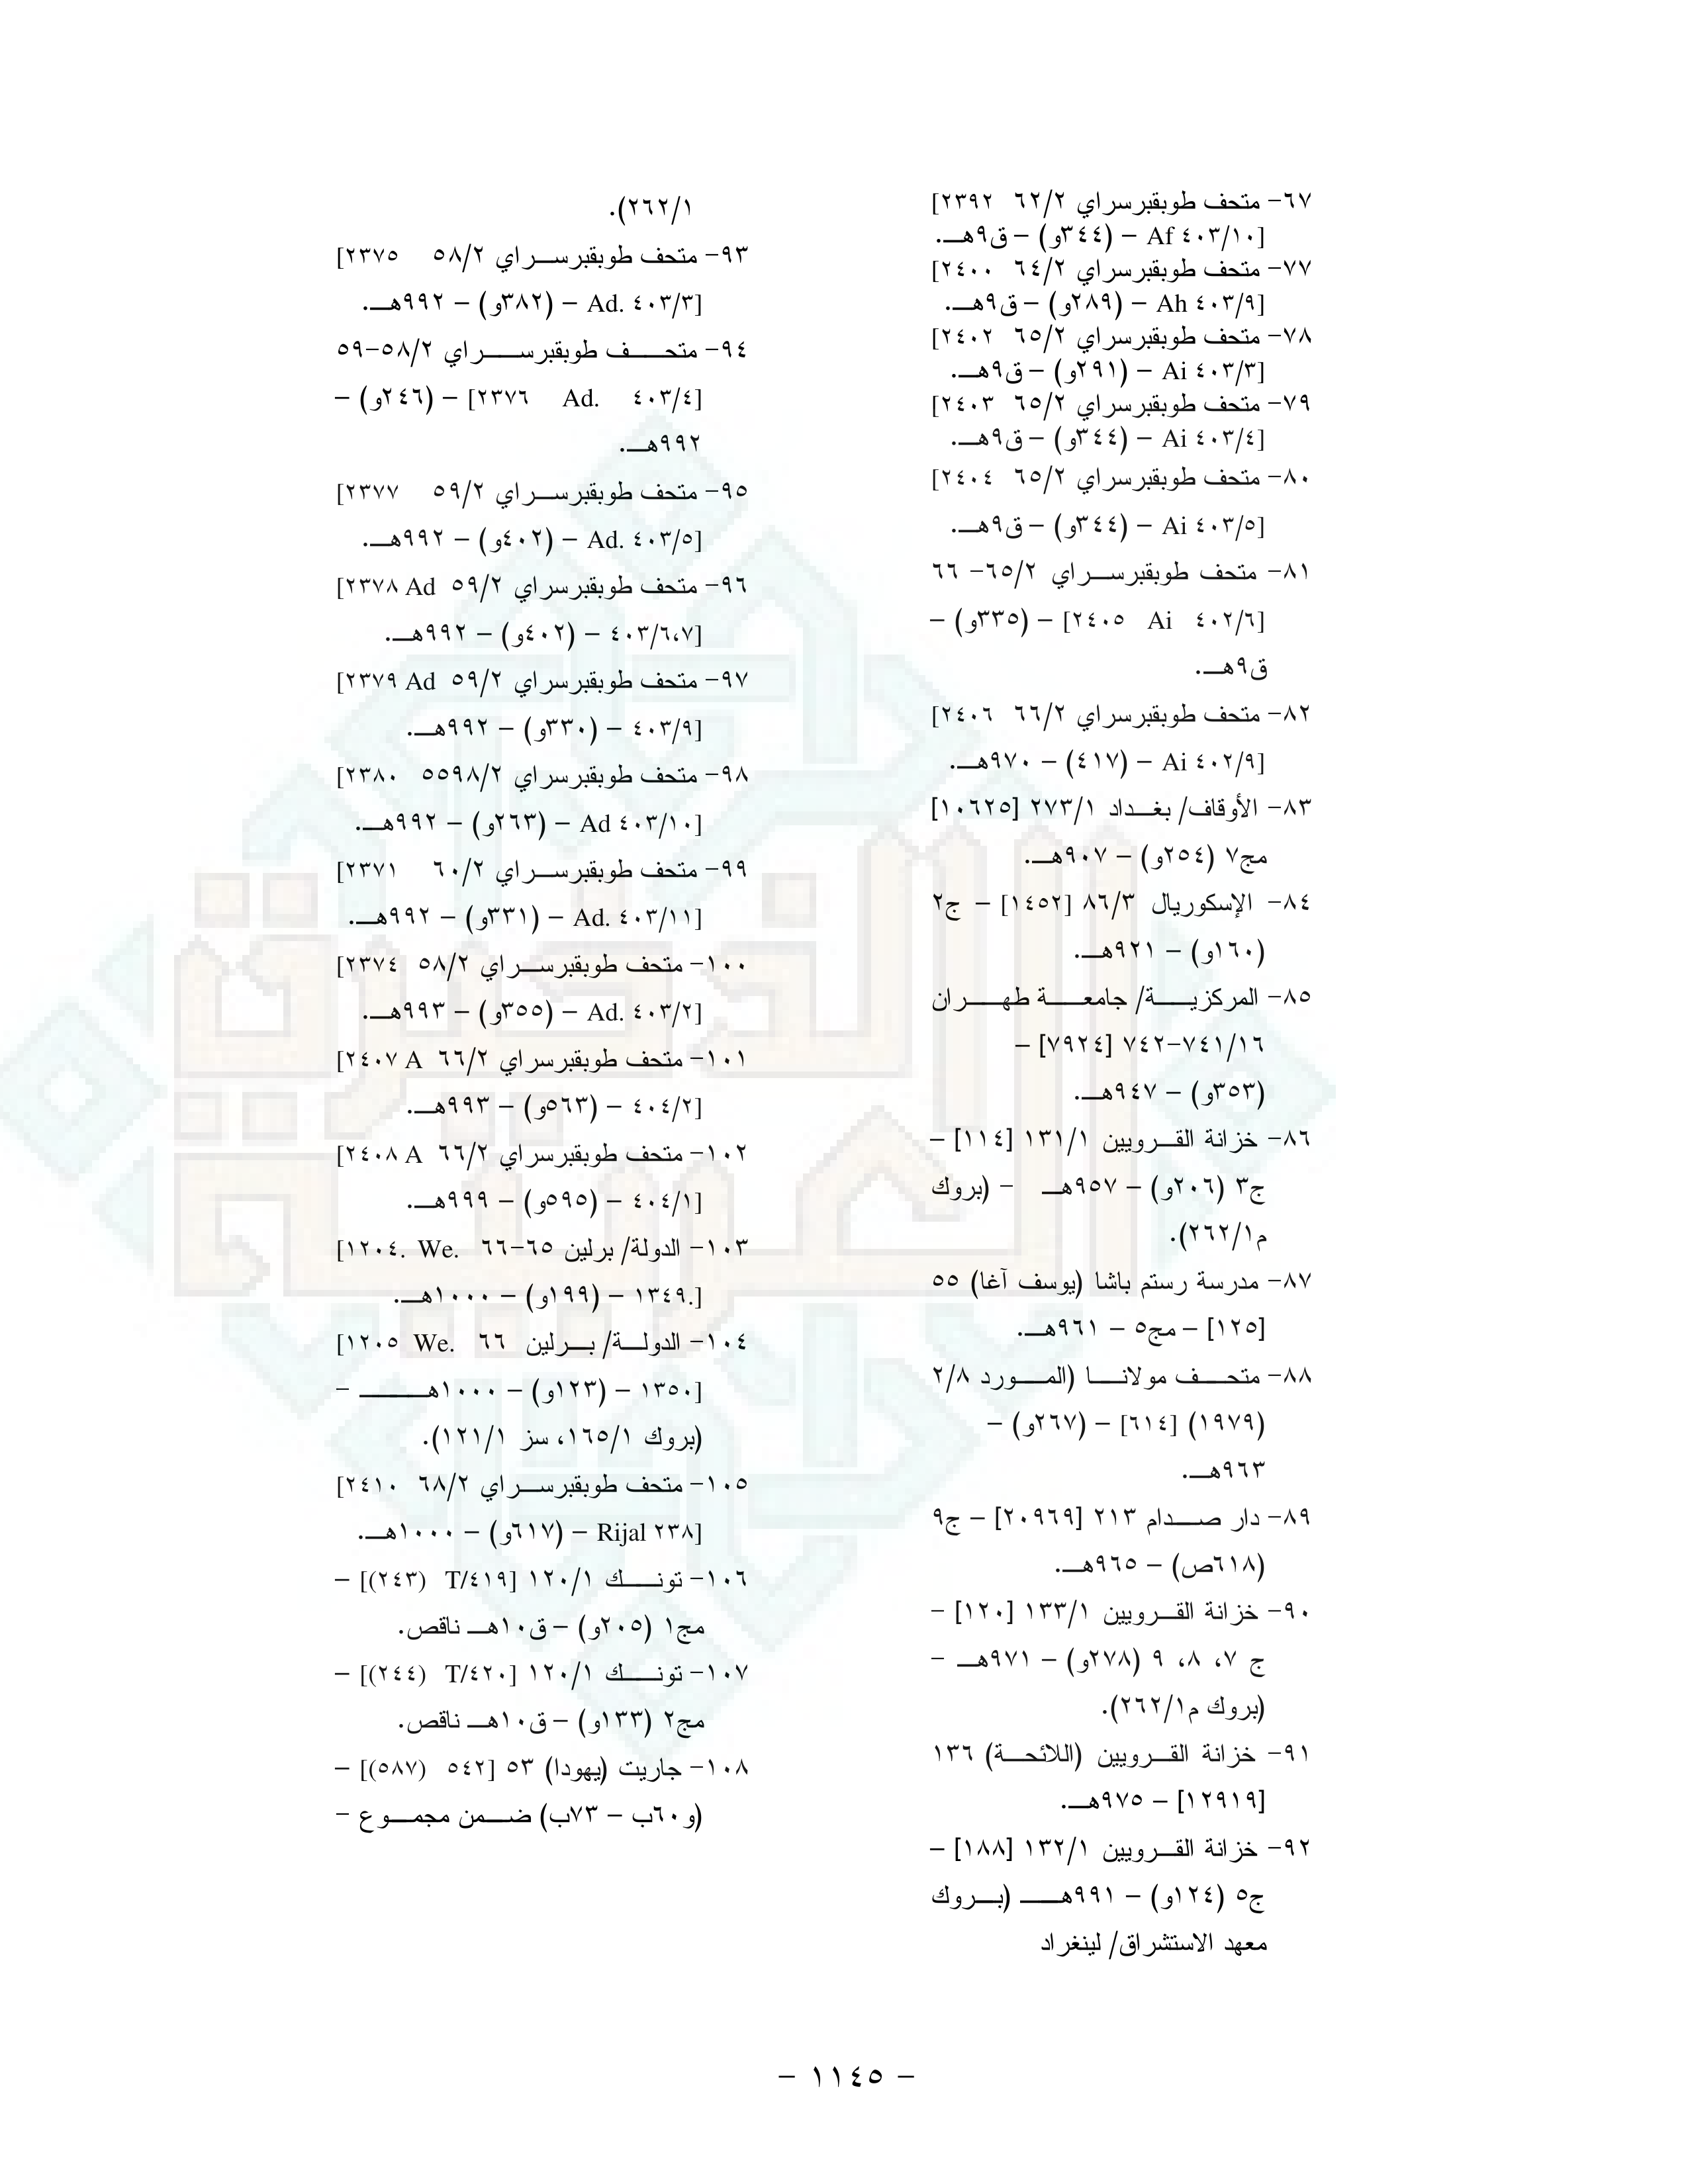 ٦٧- متحف طوبقبرسراي ٦٢/٢ [٢٣٩٢
Af ٤٠٣/١٠] - (٣٤٤و) - ق٩هـ.
٧٧- متحف طوبقبرسراي ٦٤/٢ [٢٤٠٠
Ah ٤٠٣/٩] - (٢٨٩و) - ق٩هـ.
٧٨- متحف طوبقبرسراي ٦٥/٢ [٢٤٠٢
Ai ٤٠٣/٣] - (٢٩١و) - ق٩هـ.
٧٩- متحف طوبقبرسراي ٦٥/٢ [٢٤٠٣
Ai ٤٠٣/٤] - (٣٤٤و) - ق٩هـ.
٨٠- متحف طوبقبرسراي ٦٥/٢ [٢٤٠٤
Ai ٤٠٣/٥] - (٣٤٤و) - ق٩هـ.
٨١- متحف طوبقبرسراي ٦٥/٢- ٦٦
[٢٤٠٥ Ai ٤٠٢/٦] - (٣٣٥و) -
ق٩هـ.
٨٢- متحف طوبقبرسراي ٦٦/٢ [٢٤٠٦
Ai ٤٠٢/٩] - (٤١٧) - ٩٧٠هـ.
٨٣- الأوقاف/ بغداد ٢٧٣/١ [١٠٦٢٥]
مج٧ (٢٥٤و) - ٩٠٧هـ.
٨٤- الإسكوريال ٨٦/٣ [١٤٥٢] - ج٢
(١٦٠و) - ٩٢١هـ.
٨٥- المركزية/ جامعة طهران
٧٤١/١٦-٧٤٢ [٧٩٢٤] -
(٣٥٣و) - ٩٤٧هـ.
٨٦- خزانة القرويين ١٣١/١ [١١٤] -
ج٣ (٢٠٦و) - ٩٥٧هـ - (بروك
م٢٦٢/١).
٨٧- مدرسة رستم باشا (يوسف آغا) ٥٥
[١٢٥] - مج٥ - ٩٦١هـ.
٨٨- متحف مولانا (المورد ٢/٨
(١٩٧٩) [٦١٤] - (٢٦٧و) -
٩٦٣هـ.
٨٩- دار صدام ٢١٣ [٢٠٩٦٩] - ج٩
(٦١٨ص) - ٩٦٥هـ.
٩٠- خزانة القرويين ١٣٣/١ [١٢٠] -
ج ٧، ٨، ٩ (٢٧٨و) - ٩٧١هـ -
(بروك م٢٦٢/١).
٩١- خزانة القرويين (اللائحة) ١٣٦
[١٢٩١٩] - ٩٧٥هـ.
٩٢- خزانة القرويين ١٣٢/١ [١٨٨] -
ج٥ (١٢٤و) - ٩٩١هـ (بروك
معهد الاستشراق/ لينغراد
٢٦٢/١).
٩٣- متحف طوبقبرسراي ٥٨/٢ [٢٣٧٥
Ad. ٤٠٣/٣] - (٣٨٢و) - ٩٩٢هـ.
٩٤- متحف طوبقبرسراي ٥٨/٢-٥٩
[٢٣٧٦ Ad. ٤٠٣/٤] - (٢٤٦و) -
٩٩٢هـ.
٩٥- متحف طوبقبرسراي ٥٩/٢ [٢٣٧٧
Ad. ٤٠٣/٥] - (٤٠٢و) - ٩٩٢هـ.
٩٦- متحف طوبقبرسراي ٥٩/٢ [٢٣٧٨ Ad
٤٠٣/٦،٧] - (٤٠٢و) - ٩٩٢هـ.
٩٧- متحف طوبقبرسراي ٥٩/٢ [٢٣٧٩ Ad
٤٠٣/٩] - (٣٣٠و) - ٩٩٢هـ.
٩٨- متحف طوبقبرسراي ٥٥٩٨/٢ [٢٣٨٠
Ad ٤٠٣/١٠] - (٢٦٣و) - ٩٩٢هـ.
٩٩- متحف طوبقبرسراي ٦٠/٢ [٢٣٧١
Ad. ٤٠٣/١١] - (٣٣١و) - ٩٩٢هـ.
١٠٠- متحف طوبقبرسراي ٥٨/٢ [٢٣٧٤
Ad. ٤٠٣/٢] - (٣٥٥و) - ٩٩٣هـ.
١٠١- متحف طوبقبرسراي ٦٦/٢ [٢٤٠٧ A
٤٠٤/٢] - (٥٦٣و) - ٩٩٣هـ.
١٠٢- متحف طوبقبرسراي ٦٦/٢ [٢٤٠٨ A
٤٠٤/١] - (٥٩٥و) - ٩٩٩هـ.
١٠٣- الدولة/ برلين ٦٥-٦٦ [١٢٠٤. We.
١٣٤٩.] - (١٩٩و) - ١٠٠٠هـ.
١٠٤- الدولة/ برلين ٦٦ [١٢٠٥ We.
١٣٥٠] - (١٢٣و) - ١٠٠٠هـ -
(بروك ١٦٥/١، سز ١٢١/١).
١٠٥- متحف طوبقبرسراي ٦٨/٢ [٢٤١٠
Rijal ٢٣٨] - (٦١٧و) - ١٠٠٠هـ.
١٠٦- تونك ١٢٠/١ [T/٤١٩ (٢٤٣)] -
مج١ (٢٠٥و) - ق١٠هـ ناقص.
١٠٧- تونك ١٢٠/١ [T/٤٢٠ (٢٤٤)] -
مج٢ (١٣٣و) - ق١٠هـ ناقص.
١٠٨- جاريت (يهودا) ٥٣ [٥٤٢ (٥٨٧)] -
(و٦٠ب - ٧٣ب) ضمن مجموع -
- ١١٤٥ -